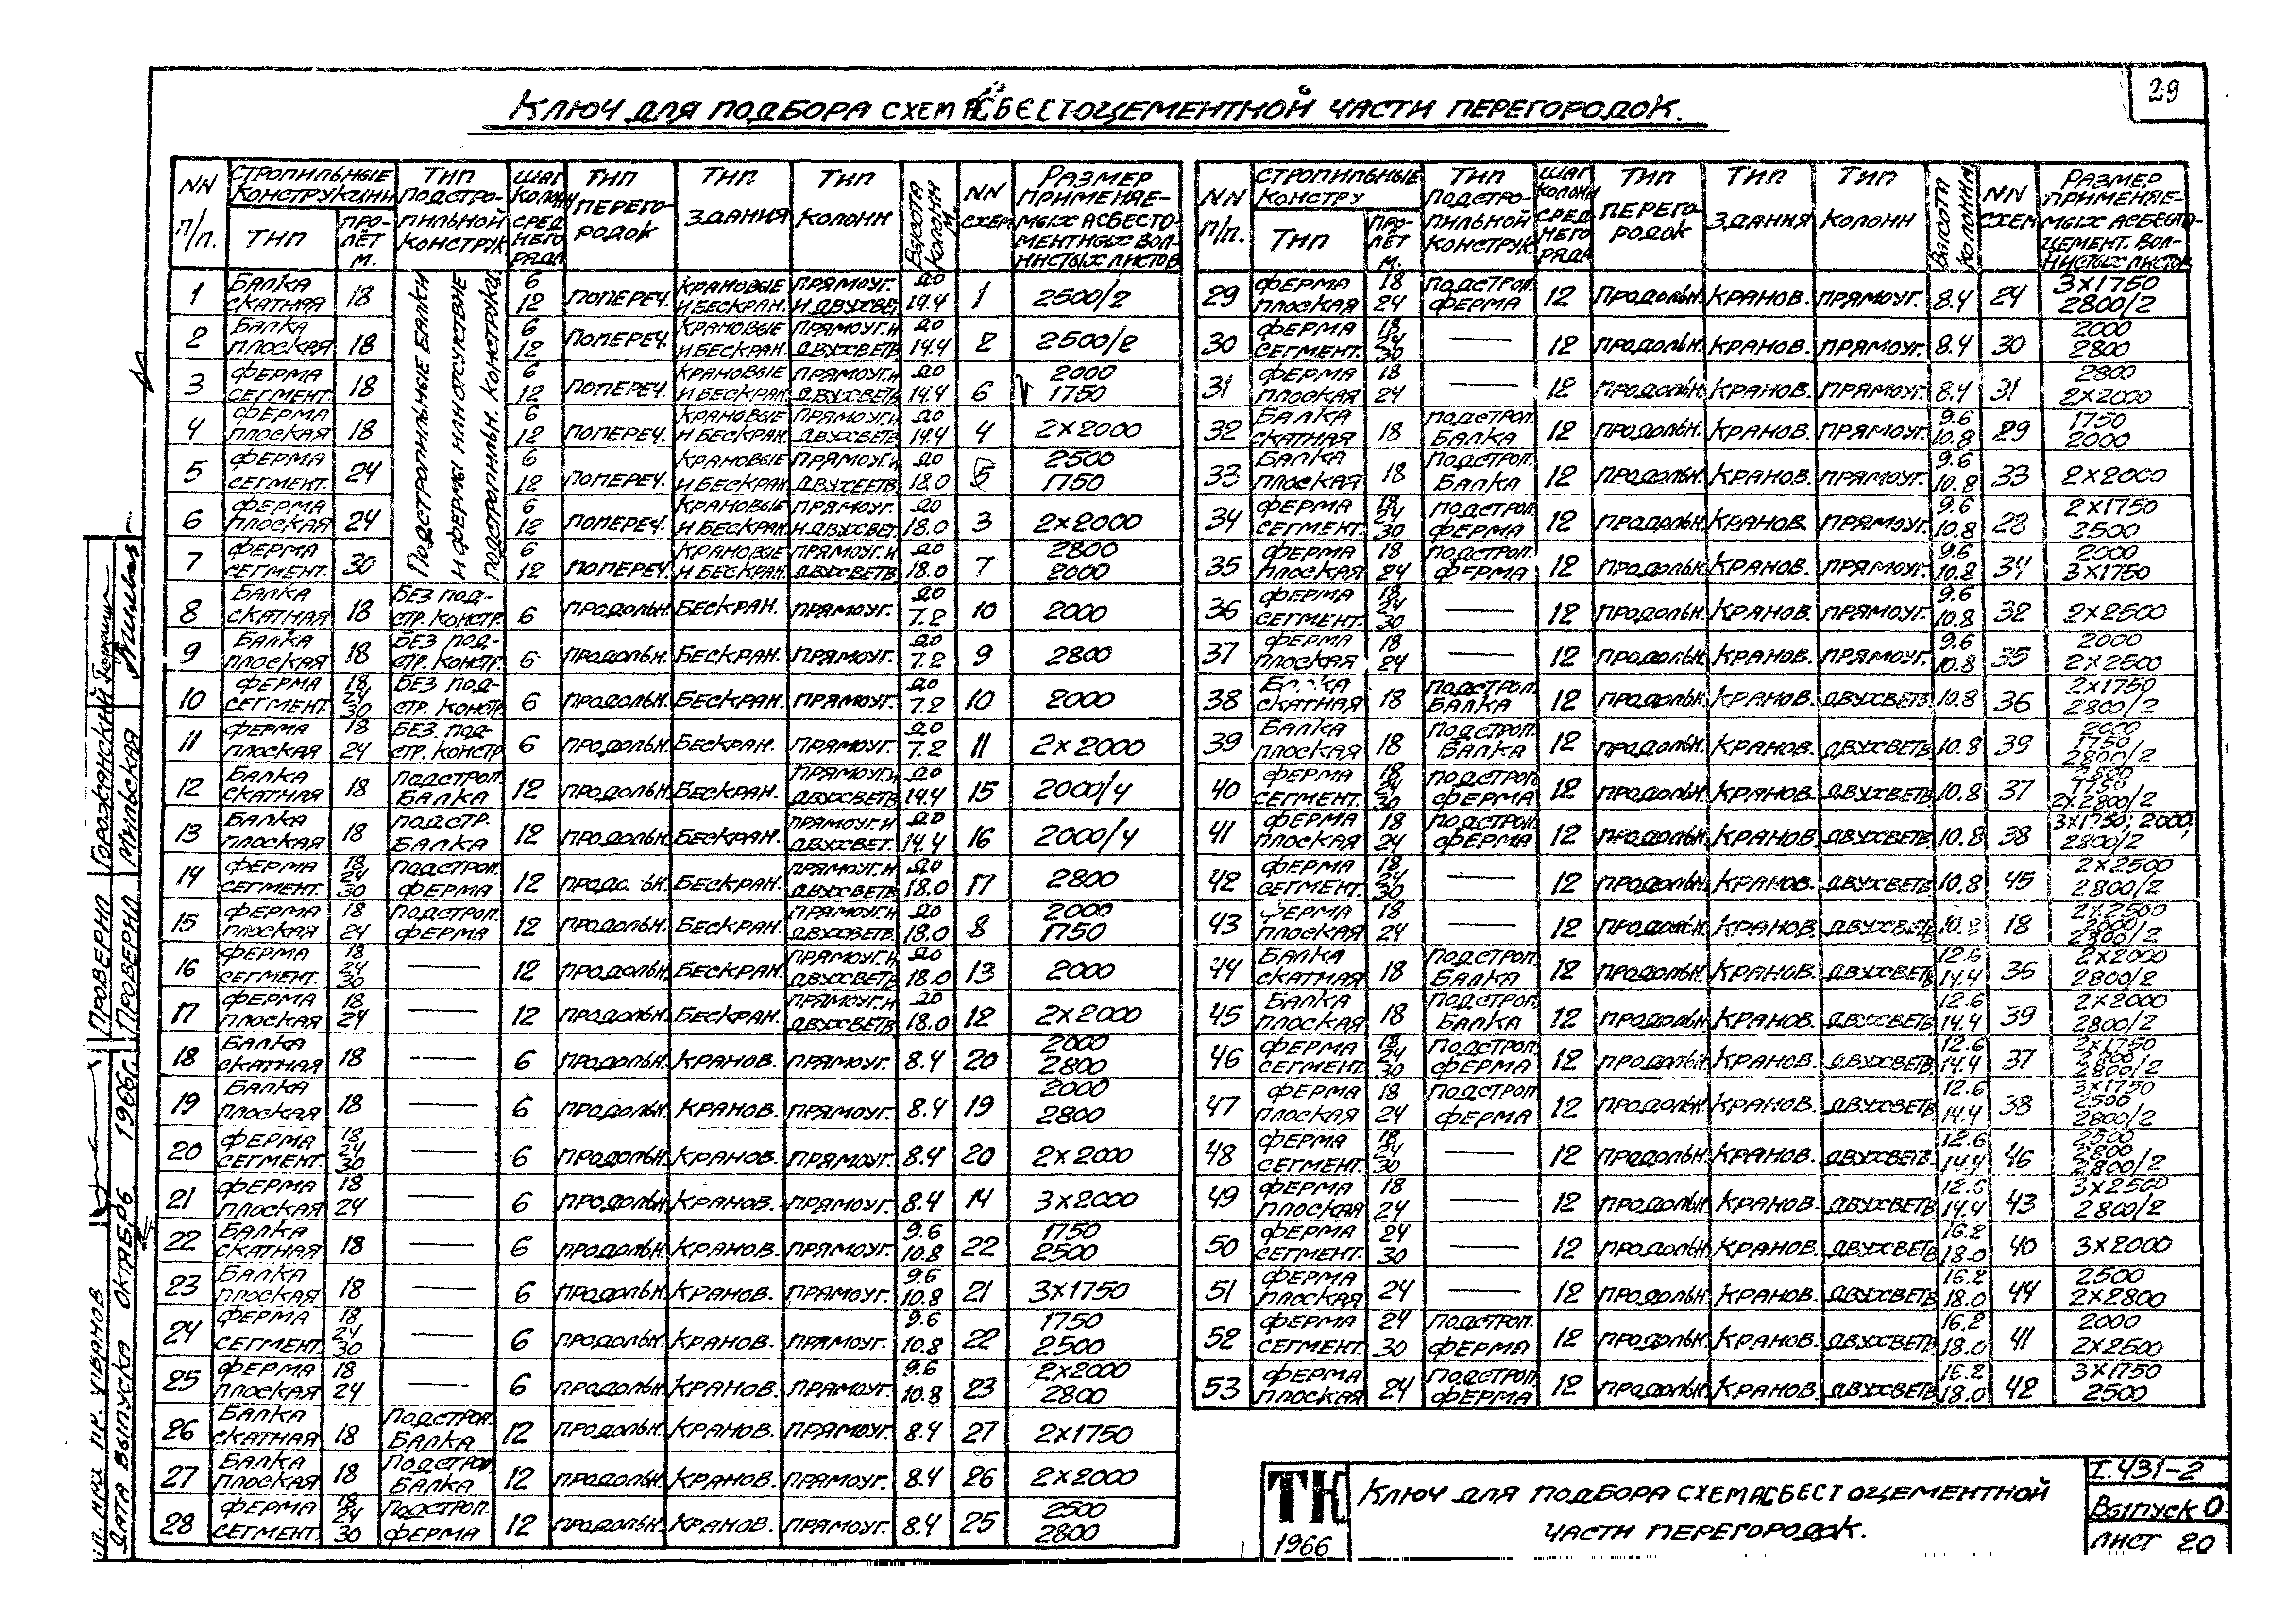 29
КЛЮЧ ДЛЯ ПОДБОРА СХЕМ АСБЕСТОЦЕМЕНТНОЙ ЧАСТИ ПЕРЕГОРОДОК.
NN П/П. СТРОПИЛЬНЫЕ КОНСТРУКЦИИ ТИП ПРОЛЁТ М. ТИП ПОДСТРОПИЛЬНОЙ КОНСТРУК ШАГ КОЛОНН СРЕДНЕГО РЯДА ТИП ПЕРЕГОРОДОК ТИП ЗДАНИЯ ТИП КОЛОНН ВЫСОТА КОЛОНН М NN СХЕМ РАЗМЕР ПРИМЕНЯЕМЫХ АСБЕСТОЦЕМЕНТНЫХ ВОЛНИСТЫХ ЛИСТОВ
ПОДСТРОПИЛЬНЫЕ БАЛКИ И ФЕРМЫ ИЛИ ОТСУТСТВИЕ ПОДСТРОПИЛЬН. КОНСТРУКЦ.
1 БАЛКА СКАТНАЯ 18 6 12 ПОПЕРЕЧ. КРАНОВЫЕ И БЕСКРАН. ПРЯМОУГ. И ДВУХВЕТ. ДО 14.4 1 2500/2
2 БАЛКА ПЛОСКАЯ 18 6 12 ПОПЕРЕЧ. КРАНОВЫЕ И БЕСКРАН. ПРЯМОУГ. И ДВУХВЕТВ. ДО 14.4 2 2500/2
3 ФЕРМА СЕГМЕНТ. 18 6 12 ПОПЕРЕЧ. КРАНОВЫЕ И БЕСКРАН. ПРЯМОУГ. И ДВУХВЕТВ. ДО 14.4 6 2000 1750
4 ФЕРМА ПЛОСКАЯ 18 6 12 ПОПЕРЕЧ. КРАНОВЫЕ И БЕСКРАН. ПРЯМОУГ. И ДВУХВЕТВ. ДО 14.4 4 2×2000
5 ФЕРМА СЕГМЕНТ. 24 6 12 ПОПЕРЕЧ. КРАНОВЫЕ И БЕСКРАН. ПРЯМОУГ. И ДВУХВЕТВ. ДО 18.0 5 2500 1750
6 ФЕРМА ПЛОСКАЯ 24 6 12 ПОПЕРЕЧ. КРАНОВЫЕ И БЕСКРАН. ПРЯМОУГ. И ДВУХВЕТ. ДО 18.0 3 2×2000
7 ФЕРМА СЕГМЕНТ. 30 6 12 ПОПЕРЕЧ. КРАНОВЫЕ И БЕСКРАН. ПРЯМОУГ. И ДВУХВЕТВ. ДО 18.0 7 2800 2000
8 БАЛКА СКАТНАЯ 18 БЕЗ ПОДСТР. КОНСТР. 6 ПРОДОЛЬН. БЕСКРАН. ПРЯМОУГ. ДО 7.2 10 2000
9 БАЛКА ПЛОСКАЯ 18 БЕЗ ПОДСТР. КОНСТР. 6 ПРОДОЛЬН. БЕСКРАН. ПРЯМОУГ. ДО 7.2 9 2800
10 ФЕРМА СЕГМЕНТ. 18 24 30 БЕЗ ПОДСТР. КОНСТР. 6 ПРОДОЛЬН. БЕСКРАН. ПРЯМОУГ. ДО 7.2 10 2000
11 ФЕРМА ПЛОСКАЯ 18 24 БЕЗ ПОДСТР. КОНСТР 6 ПРОДОЛЬН. БЕСКРАН. ПРЯМОУГ. ДО 7.2 11 2×2000
12 БАЛКА СКАТНАЯ 18 ПОДСТРОП. БАЛКА 12 ПРОДОЛЬН. БЕСКРАН. ПРЯМОУГ. И ДВУХВЕТВ. ДО 14.4 15 2000/4
13 БАЛКА ПЛОСКАЯ 18 ПОДСТР. БАЛКА 12 ПРОДОЛЬН. БЕСКРАН. ПРЯМОУГ. И ДВУХВЕТ. ДО 14.4 16 2000/4
14 ФЕРМА СЕГМЕНТ. 18 24 30 ПОДСТРОП. ФЕРМА 12 БЕСКРАН. ПРЯМОУГ. И ДВУХВЕТВ. ДО 18.0 17 2800
15 ФЕРМА ПЛОСКАЯ 18 24 ПОДСТРОП. ФЕРМА 12 ПРОДОЛЬН. БЕСКРАН. ПРЯМОУГ. И ДВУХВЕТВ. ДО 18.0 8 2000 1750
16 ФЕРМА СЕГМЕНТ. 18 24 30 — 12 ПРОДОЛЬН. БЕСКРАН. ПРЯМОУГ. И ДВУХВЕТВ. ДО 18.0 13 2000
17 ФЕРМА ПЛОСКАЯ 18 24 — 12 ПРОДОЛЬН. БЕСКРАН. ПРЯМОУГ. И ДВУХВЕТВ. ДО 18.0 12 2×2000
18 БАЛКА СКАТНАЯ 18 — 6 ПРОДОЛЬН. КРАНОВ. ПРЯМОУГ. 8.4 20 2000 2800
19 БАЛКА ПЛОСКАЯ 18 — 6 ПРОДОЛЬН. КРАНОВ. ПРЯМОУГ. 8.4 19 2000 2800
20 ФЕРМА СЕГМЕНТ. 18 24 30 — 6 ПРОДОЛЬН. КРАНОВ. ПРЯМОУГ. 8.4 20 2×2000
21 ФЕРМА ПЛОСКАЯ 18 24 — 6 ПРОДОЛЬН. КРАНОВ. ПРЯМОУГ. 8.4 14 3×2000
22 БАЛКА СКАТНАЯ 18 — 6 ПРОДОЛЬН. КРАНОВ. ПРЯМОУГ. 9.6 10.8 22 1750 2500
23 БАЛКА ПЛОСКАЯ 18 — 6 ПРОДОЛЬН. КРАНОВ. ПРЯМОУГ. 9.6 10.8 21 3×1750
24 ФЕРМА СЕГМЕНТ. 18 24 30 — 6 ПРОДОЛЬН. КРАНОВ. ПРЯМОУГ. 9.6 10.8 22 1750 2500
25 ФЕРМА ПЛОСКАЯ 18 24 — 6 ПРОДОЛЬН. КРАНОВ. ПРЯМОУГ. 9.6 10.8 23 2×2000 2800
26 БАЛКА СКАТНАЯ 18 ПОДСТРОП. БАЛКА 12 ПРОДОЛЬН. КРАНОВ. ПРЯМОУГ. 8.4 27 2×1750
27 БАЛКА ПЛОСКАЯ 18 ПОДСТРОП. БАЛКА 12 ПРОДОЛЬН. КРАНОВ. ПРЯМОУГ. 8.4 26 2×2000
28 ФЕРМА СЕГМЕНТ. 18 24 30 ПОДСТРОП. ФЕРМА 12 ПРОДОЛЬН. КРАНОВ. ПРЯМОУГ. 8.4 25 2500 2800
NN П/П. СТРОПИЛЬНЫЕ КОНСТРУ ТИП ПРОЛЁТ М. ТИП ПОДСТРОПИЛЬНОЙ КОНСТРУК. ШАГ КОЛОНН СРЕДНЕГО РЯДА ТИП ПЕРЕГОРОДОК ТИП ЗДАНИЯ ТИП КОЛОНН ВЫСОТА КОЛОНН М. NN СХЕМ РАЗМЕР ПРИМЕНЯЕМЫХ АСБЕСТОЦЕМЕНТ. ВОЛНИСТЫХ ЛИСТОВ
29 ФЕРМА ПЛОСКАЯ 18 24 ПОДСТРОП. ФЕРМА 12 ПРОДОЛЬН. КРАНОВ. ПРЯМОУГ. 8.4 24 3×1750 2800/2
30 ФЕРМА СЕГМЕНТ. 18 24 30 — 12 ПРОДОЛЬН. КРАНОВ. ПРЯМОУГ. 8.4 30 2000 2800
31 ФЕРМА ПЛОСКАЯ 18 24 — 12 ПРОДОЛЬН. КРАНОВ. ПРЯМОУГ. 8.4 31 2800 2×2000
32 БАЛКА СКАТНАЯ 18 ПОДСТРОП. БАЛКА 12 ПРОДОЛЬН. КРАНОВ. ПРЯМОУГ. 9.6 10.8 29 1750 2000
33 БАЛКА ПЛОСКАЯ 18 ПОДСТРОП. БАЛКА 12 ПРОДОЛЬН. КРАНОВ. ПРЯМОУГ. 9.6 10.8 33 2×2000
34 ФЕРМА СЕГМЕНТ. 18 24 30 ПОДСТРОП. ФЕРМА 12 ПРОДОЛЬН. КРАНОВ. ПРЯМОУГ. 9.6 10.8 28 2×1750 2500
35 ФЕРМА ПЛОСКАЯ 18 24 ПОДСТРОП. ФЕРМА 12 ПРОДОЛЬН. КРАНОВ. ПРЯМОУГ. 9.6 10.8 34 2000 3×1750
36 ФЕРМА СЕГМЕНТ. 18 24 30 — 12 ПРОДОЛЬН. КРАНОВ. ПРЯМОУГ. 9.6 10.8 32 2×2500
37 ФЕРМА ПЛОСКАЯ 18 24 — 12 ПРОДОЛЬН. КРАНОВ. ПРЯМОУГ. 9.6 10.8 35 2000 2×2500
38 БАЛКА СКАТНАЯ 18 ПОДСТРОП. БАЛКА 12 ПРОДОЛЬН. КРАНОВ. ДВУХВЕТВ. 10.8 36 2×1750 2800/2
39 БАЛКА ПЛОСКАЯ 18 ПОДСТРОП. БАЛКА 12 ПРОДОЛЬН. КРАНОВ. ДВУХВЕТВ. 10.8 39 2000 1750 2800/2
40 ФЕРМА СЕГМЕНТ. 18 24 30 ПОДСТРОП. ФЕРМА 12 ПРОДОЛЬН. КРАНОВ. ДВУХВЕТВ. 10.8 37 1750 2×2800/2
41 ФЕРМА ПЛОСКАЯ 18 24 ПОДСТРОП. ФЕРМА 12 ПРОДОЛЬН. КРАНОВ. ДВУХВЕТВ. 10.8 38 3×1750; 2000; 2800/2
42 ФЕРМА СЕГМЕНТ. 18 24 30 — 12 ПРОДОЛЬН. КРАНОВ. ДВУХВЕТВ. 10.8 45 2×2500 2800/2
43 ФЕРМА ПЛОСКАЯ 18 24 — 12 ПРОДОЛЬН. КРАНОВ. ДВУХВЕТВ. 10.8 18 2×2500 2000 2800/2
44 БАЛКА СКАТНАЯ 18 ПОДСТРОП. БАЛКА 12 ПРОДОЛЬН. КРАНОВ. ДВУХВЕТВ. 12.6 14.4 36 2×2000 2800/2
45 БАЛКА ПЛОСКАЯ 18 ПОДСТРОП. БАЛКА 12 ПРОДОЛЬН. КРАНОВ. ДВУХВЕТВ. 12.6 14.4 39 2×2000 2800/2
46 ФЕРМА СЕГМЕНТ. 18 24 30 ПОДСТРОП. ФЕРМА 12 ПРОДОЛЬН. КРАНОВ. ДВУХВЕТВ. 12.6 14.4 37 2×1750 2800/2
47 ФЕРМА ПЛОСКАЯ 18 24 ПОДСТРОП. ФЕРМА 12 ПРОДОЛЬН. КРАНОВ. ДВУХВЕТВ. 12.6 14.4 38 3×1750 2500 2800/2
48 ФЕРМА СЕГМЕНТ. 18 24 30 — 12 ПРОДОЛЬН. КРАНОВ. ДВУХВЕТВ. 12.6 14.4 46 2500 2800 2800/2
49 ФЕРМА ПЛОСКАЯ 18 24 — 12 ПРОДОЛЬН. КРАНОВ. ДВУХВЕТВ. 12.6 14.4 43 3×2500 2800/2
50 ФЕРМА СЕГМЕНТ. 24 30 — 12 ПРОДОЛЬН. КРАНОВ. ДВУХВЕТВ. 16.2 18.0 40 3×2000
51 ФЕРМА ПЛОСКАЯ 24 — 12 ПРОДОЛЬН. КРАНОВ. ДВУХВЕТВ. 16.2 18.0 44 2500 2×2800
52 ФЕРМА СЕГМЕНТ. 24 30 ПОДСТРОП. ФЕРМА 12 ПРОДОЛЬН. КРАНОВ. ДВУХВЕТВ. 16.2 18.0 41 2000 2×2500
53 ФЕРМА ПЛОСКАЯ 24 ПОДСТРОП. ФЕРМА 12 ПРОДОЛЬН. КРАНОВ. ДВУХВЕТВ. 16.2 18.0 42 3×1750 2500
ПР. ИВАНОВ ПРОВЕРИЛ ГОРОЖАНСКИЙ
ДАТА ВЫПУСКА ОКТЯБРЬ 1966г. ПРОВЕРИЛ МИЛЬСКАЯ
ТК
1966
КЛЮЧ ДЛЯ ПОДБОРА СХЕМ АСБЕСТОЦЕМЕНТНОЙ
ЧАСТИ ПЕРЕГОРОДОК.
I.431-2
ВЫПУСК 0
ЛИСТ 20